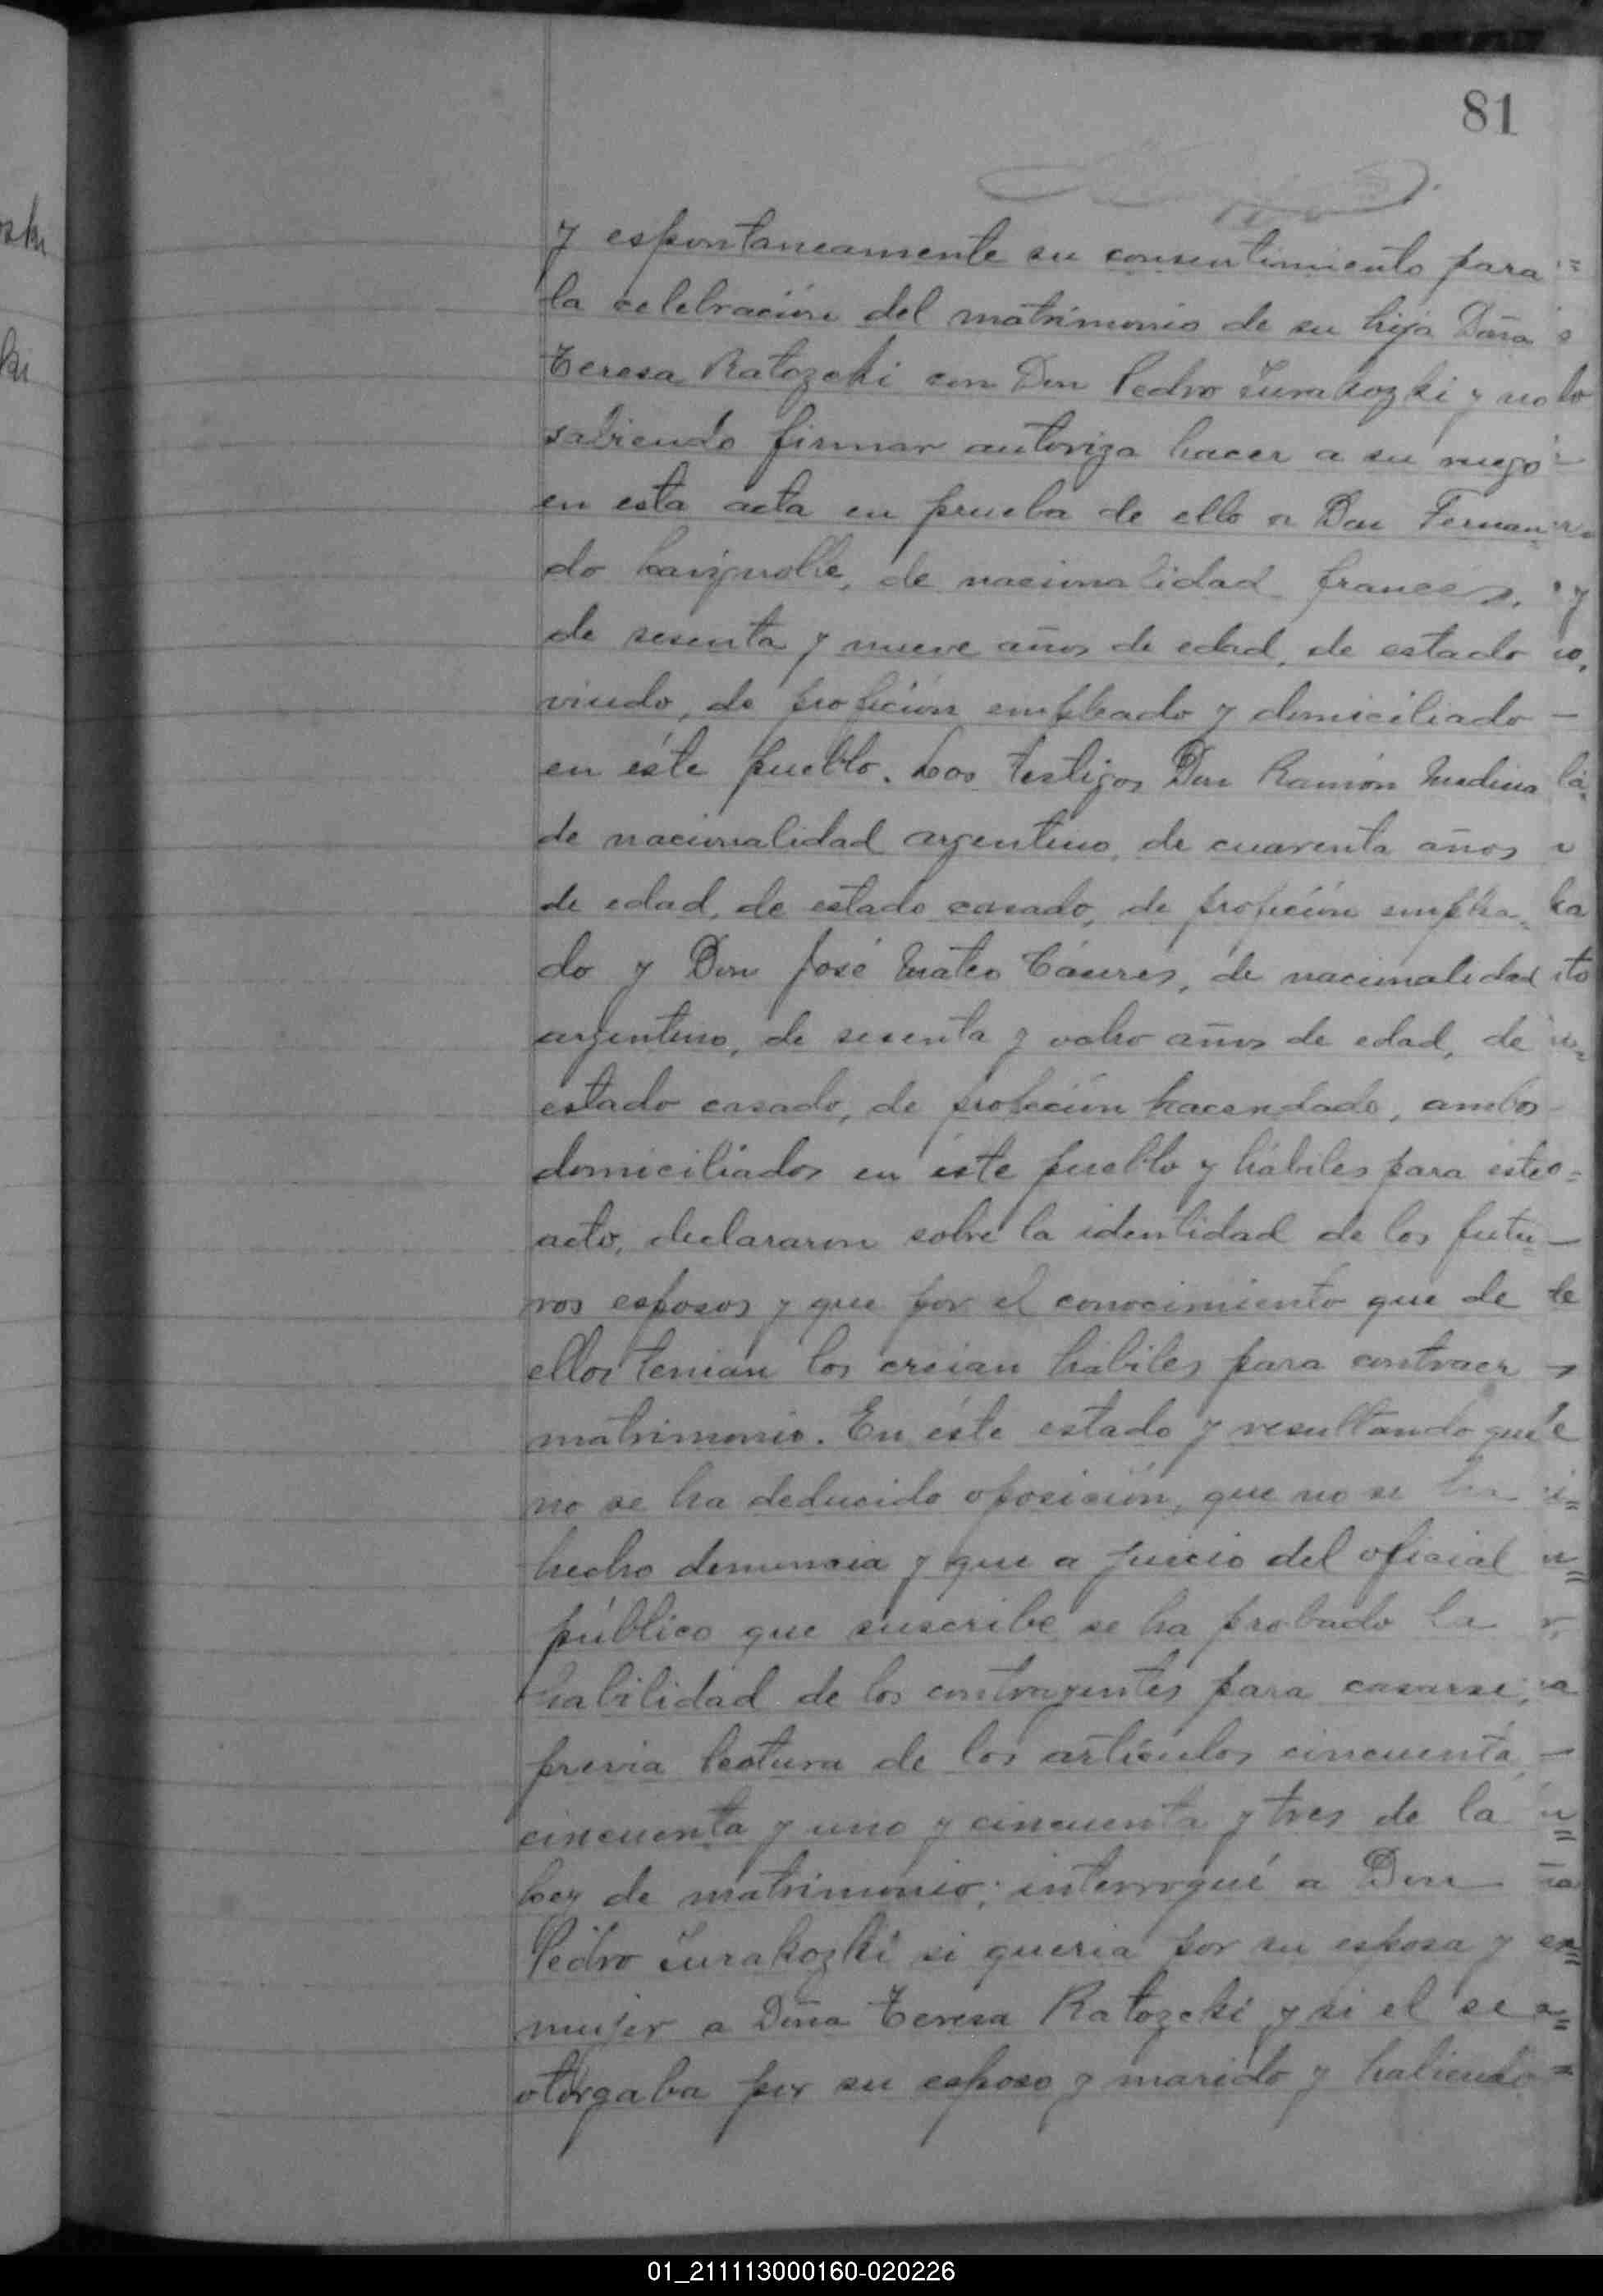 81
y espontaneamente su consentimiento para
la celebración del matrimonio de su hija Doña
Teresa Ratozcki con Don Pedro Turakozki y no
sabiendo firmar autoriza hacer a su ruego
en esta acta en prueba de ello a Don Fernan=
do de nacionalidad francés,
de sesenta y nueve años de edad, de estado
viudo, de profición empleado y domiciliado
en éste pueblo. Los testigos Don Ramón Medina
de nacionalidad argentino, de cuarenta años
de edad, de estado casado, de profición emplea=
do y Don José Mateo Cáseres, de nacionalidad
argentino, de sesenta y ocho años de edad, de
estado casado, de profeción hacendado, ambos
domiciliados en éste pueblo y hábiles para éste
acto, declararon sobre la identidad de los futu=
ros esposos y que por el conocimiento que de
ellos tenian los creian hábiles para contraer
matrimonio. En éste estado y resultando que
no se ha deducido oposición, que no se ha
hecho denuncia y que a juicio del oficial
público que suscribe se ha probado la
habilidad de los contrayentes para casarse;
previa lectura de los artículos cincuenta,
cincuenta y uno y cincuenta y tres de la
Ley de matrimonio; interrogué a Don
Pedro Turakozki si queria por su esposa y
mujer a Doña Teresa Ratozcki y si el se
otorgaba por su esposo y marido y habiendo
01_211113000160-020226